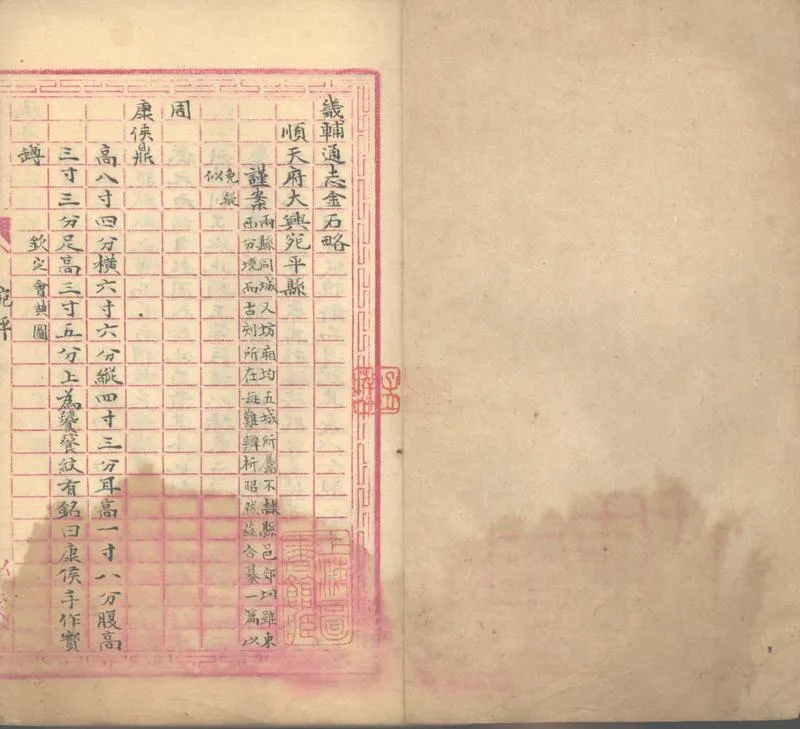 畿輔通志金石略
順天府大興宛平縣
謹案兩縣同城又坊廂均五城所屬不隸縣邑郊坰雖東
西分境而古刻所在每難辨析昭然茲合纂一篇以
免疑
似
周
康侯鼎
高八寸四分橫六寸六分縱四寸三分耳高一寸八分腹高
三寸三分足高三寸五分上為饕餮紋有銘曰康侯丰作寶
罇
欽定會典圖
宛平
上海圖書館藏